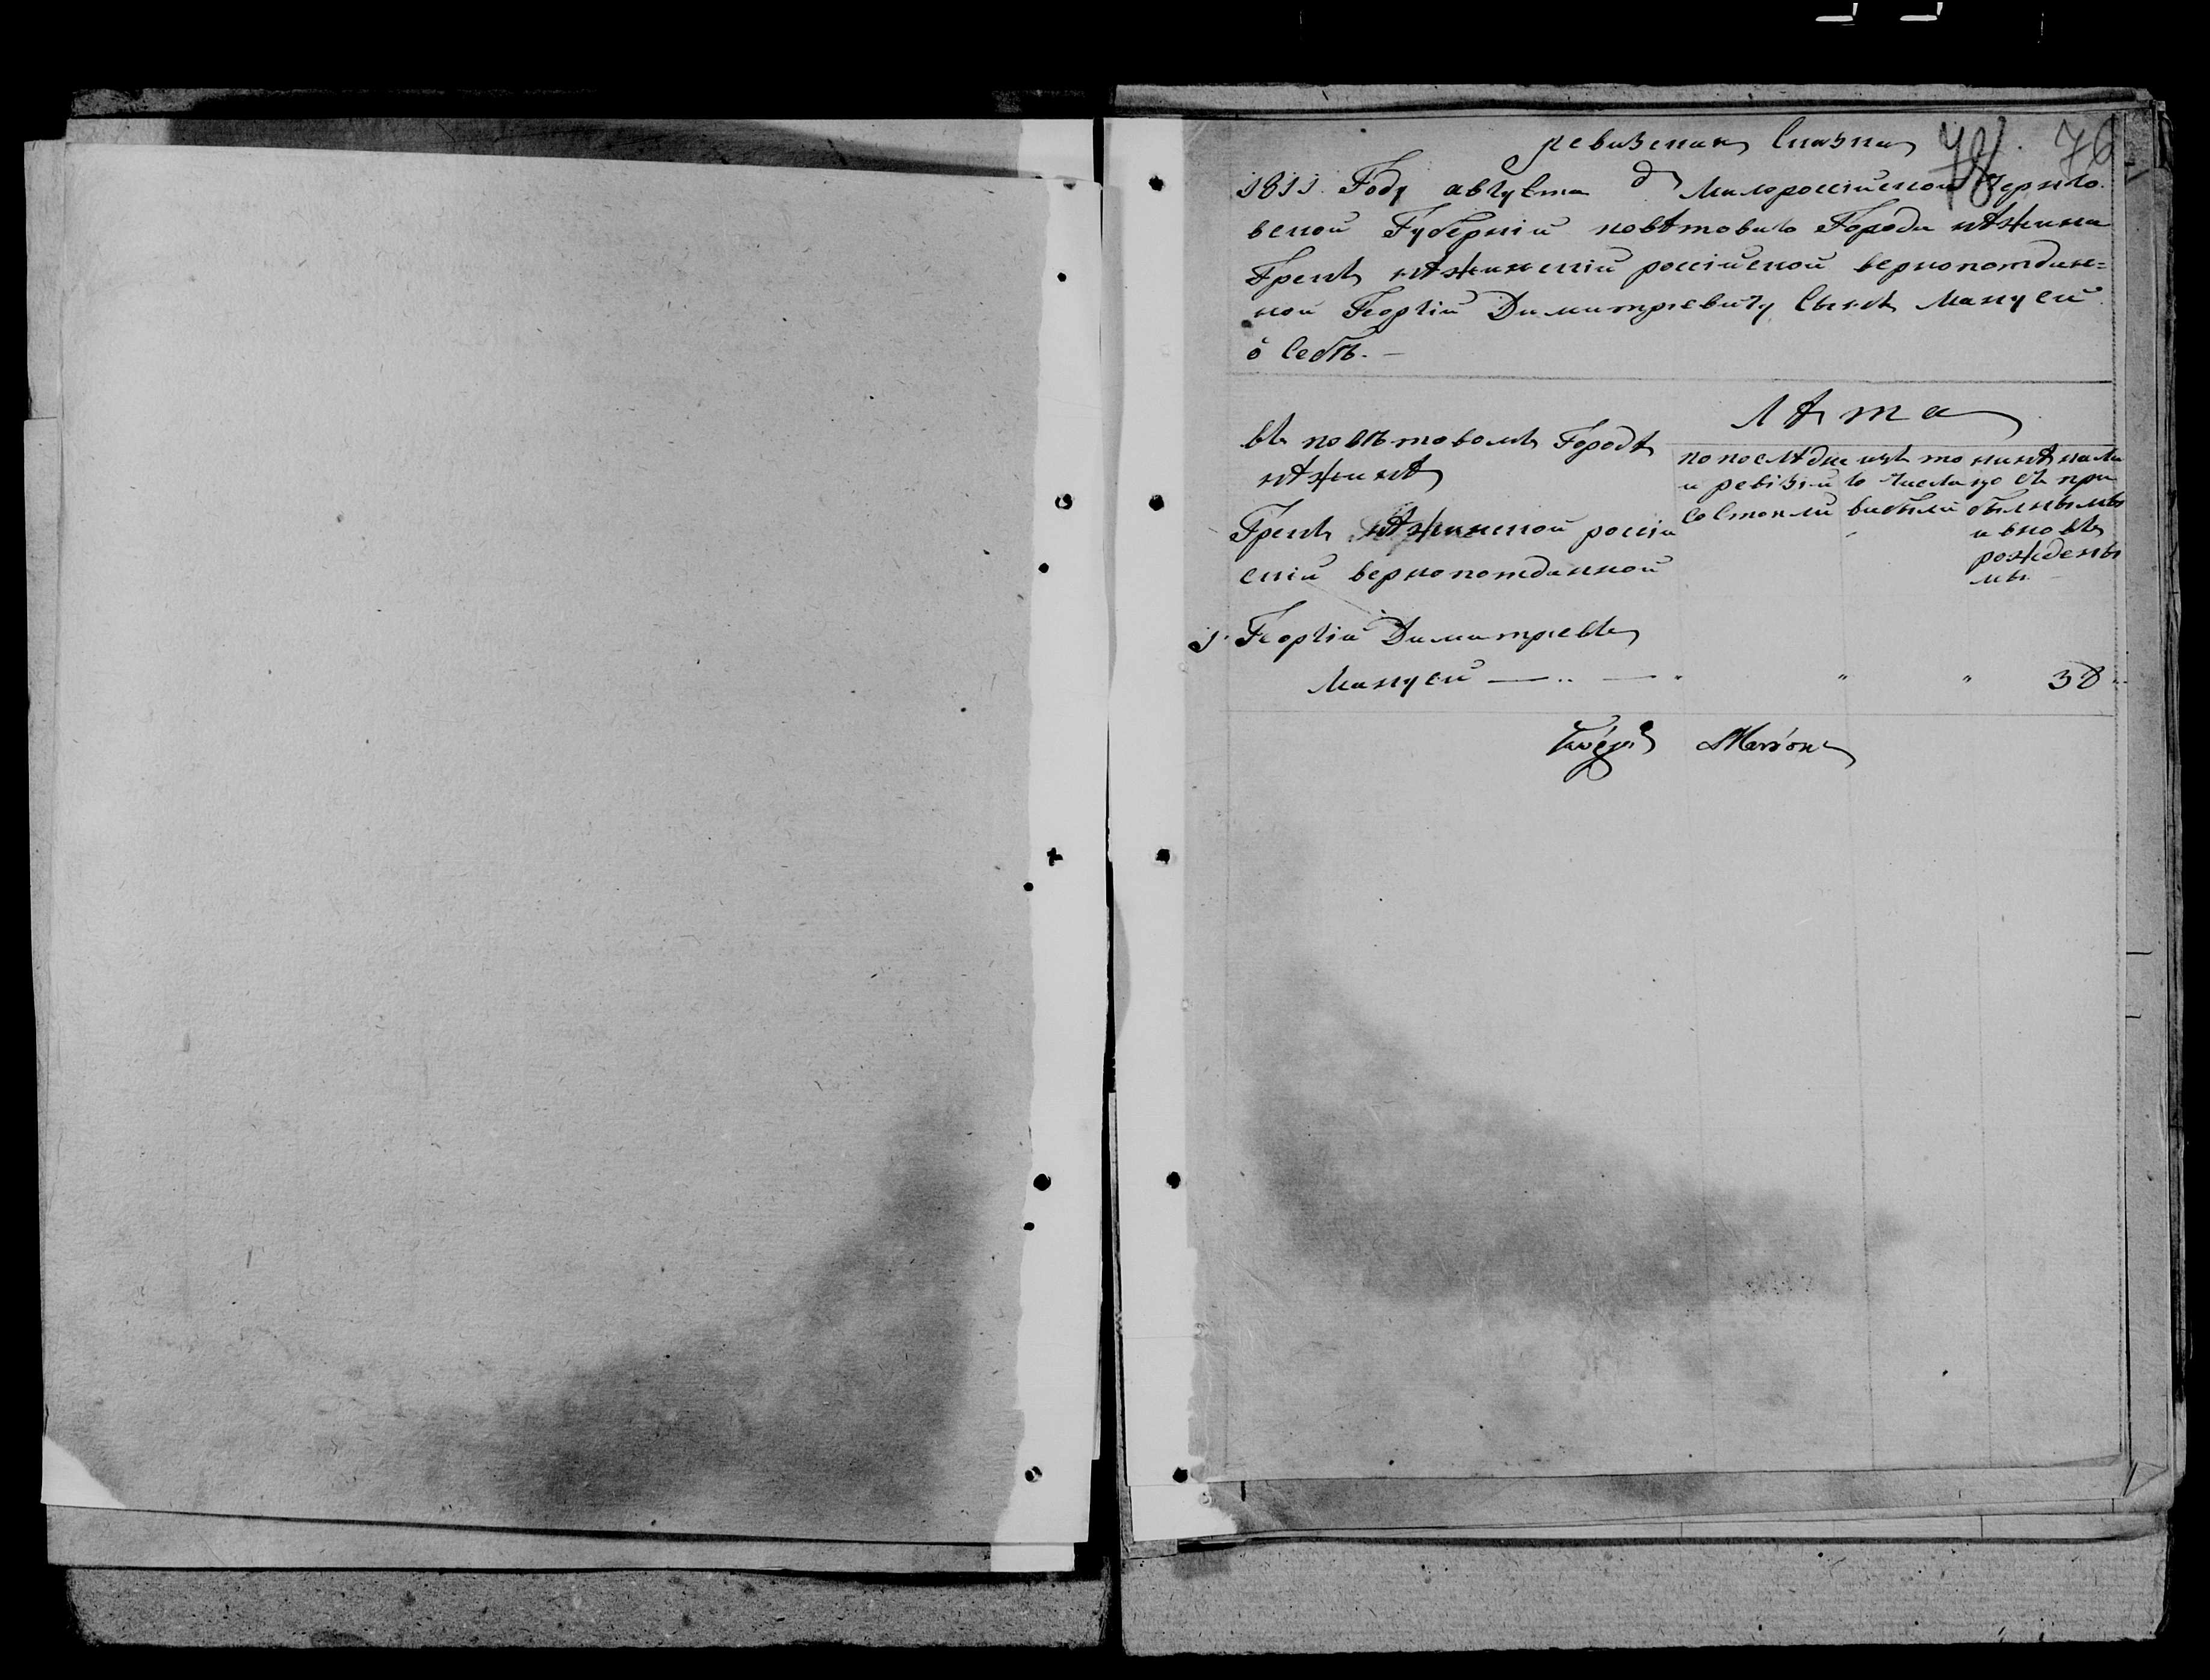 ревизская Сказка
78. 76
1811. Году августа д Малороссійской Черниго
вской Губерніи повѣтоваго Города нѣжина
Грекъ нѣжинскій россійской вернопотдан=
ной Георгій Димитревичу Сынъ Манусй
ó Себѣ. —
Лѣта
въ повѣтовомъ Городѣ
нѣжинѣ
Грекъ нѣжинской россій
скій вернопотданной
по последне
и ревізіи
состояли
изъ то
го числа
выбыли
нинѣ на ли
цо съ при
былными
и вновь
рожденны
мы
1. Георгій Димитревъ
Манусй — .. — " " " 38